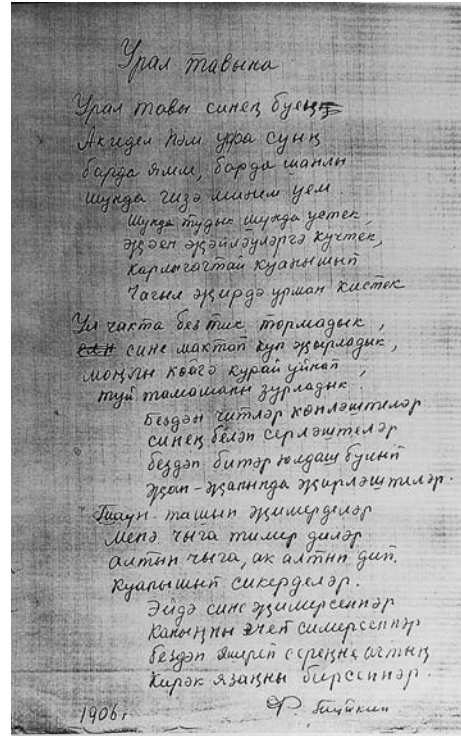 Урал тавына
Урал тавы синең буең
Акидел һәм уфа суың
барда ямли, барда шанлы
шунда гизә миним уем.
шунда тудык шунда үстек,
җәен җәйләүләргә күчтек,
карлыгачтай куанышып
Чагыл җирдә урман кистек
Ул чакта без тик тормадык,
сине мактап күп җырладык,
моңлы көйгә курай уйнап,
туй тамашаны зурладык.
бездән читләр көнләштеләр
синең белән серләштеләр
бездән битәр юлдаш булып
җан-җапында җирләштеләр.
ташың җимерделәр
менә чыга тимер диләр
алтын чыга, ак алтын дип.
куанышып сикерделәр.
Әйдә сине җимерсеннәр
каныңны эчеп симерсеннәр
бездән яшереп сереңне ачтың
Кирәк язаңны бирсеннәр.
1906 г